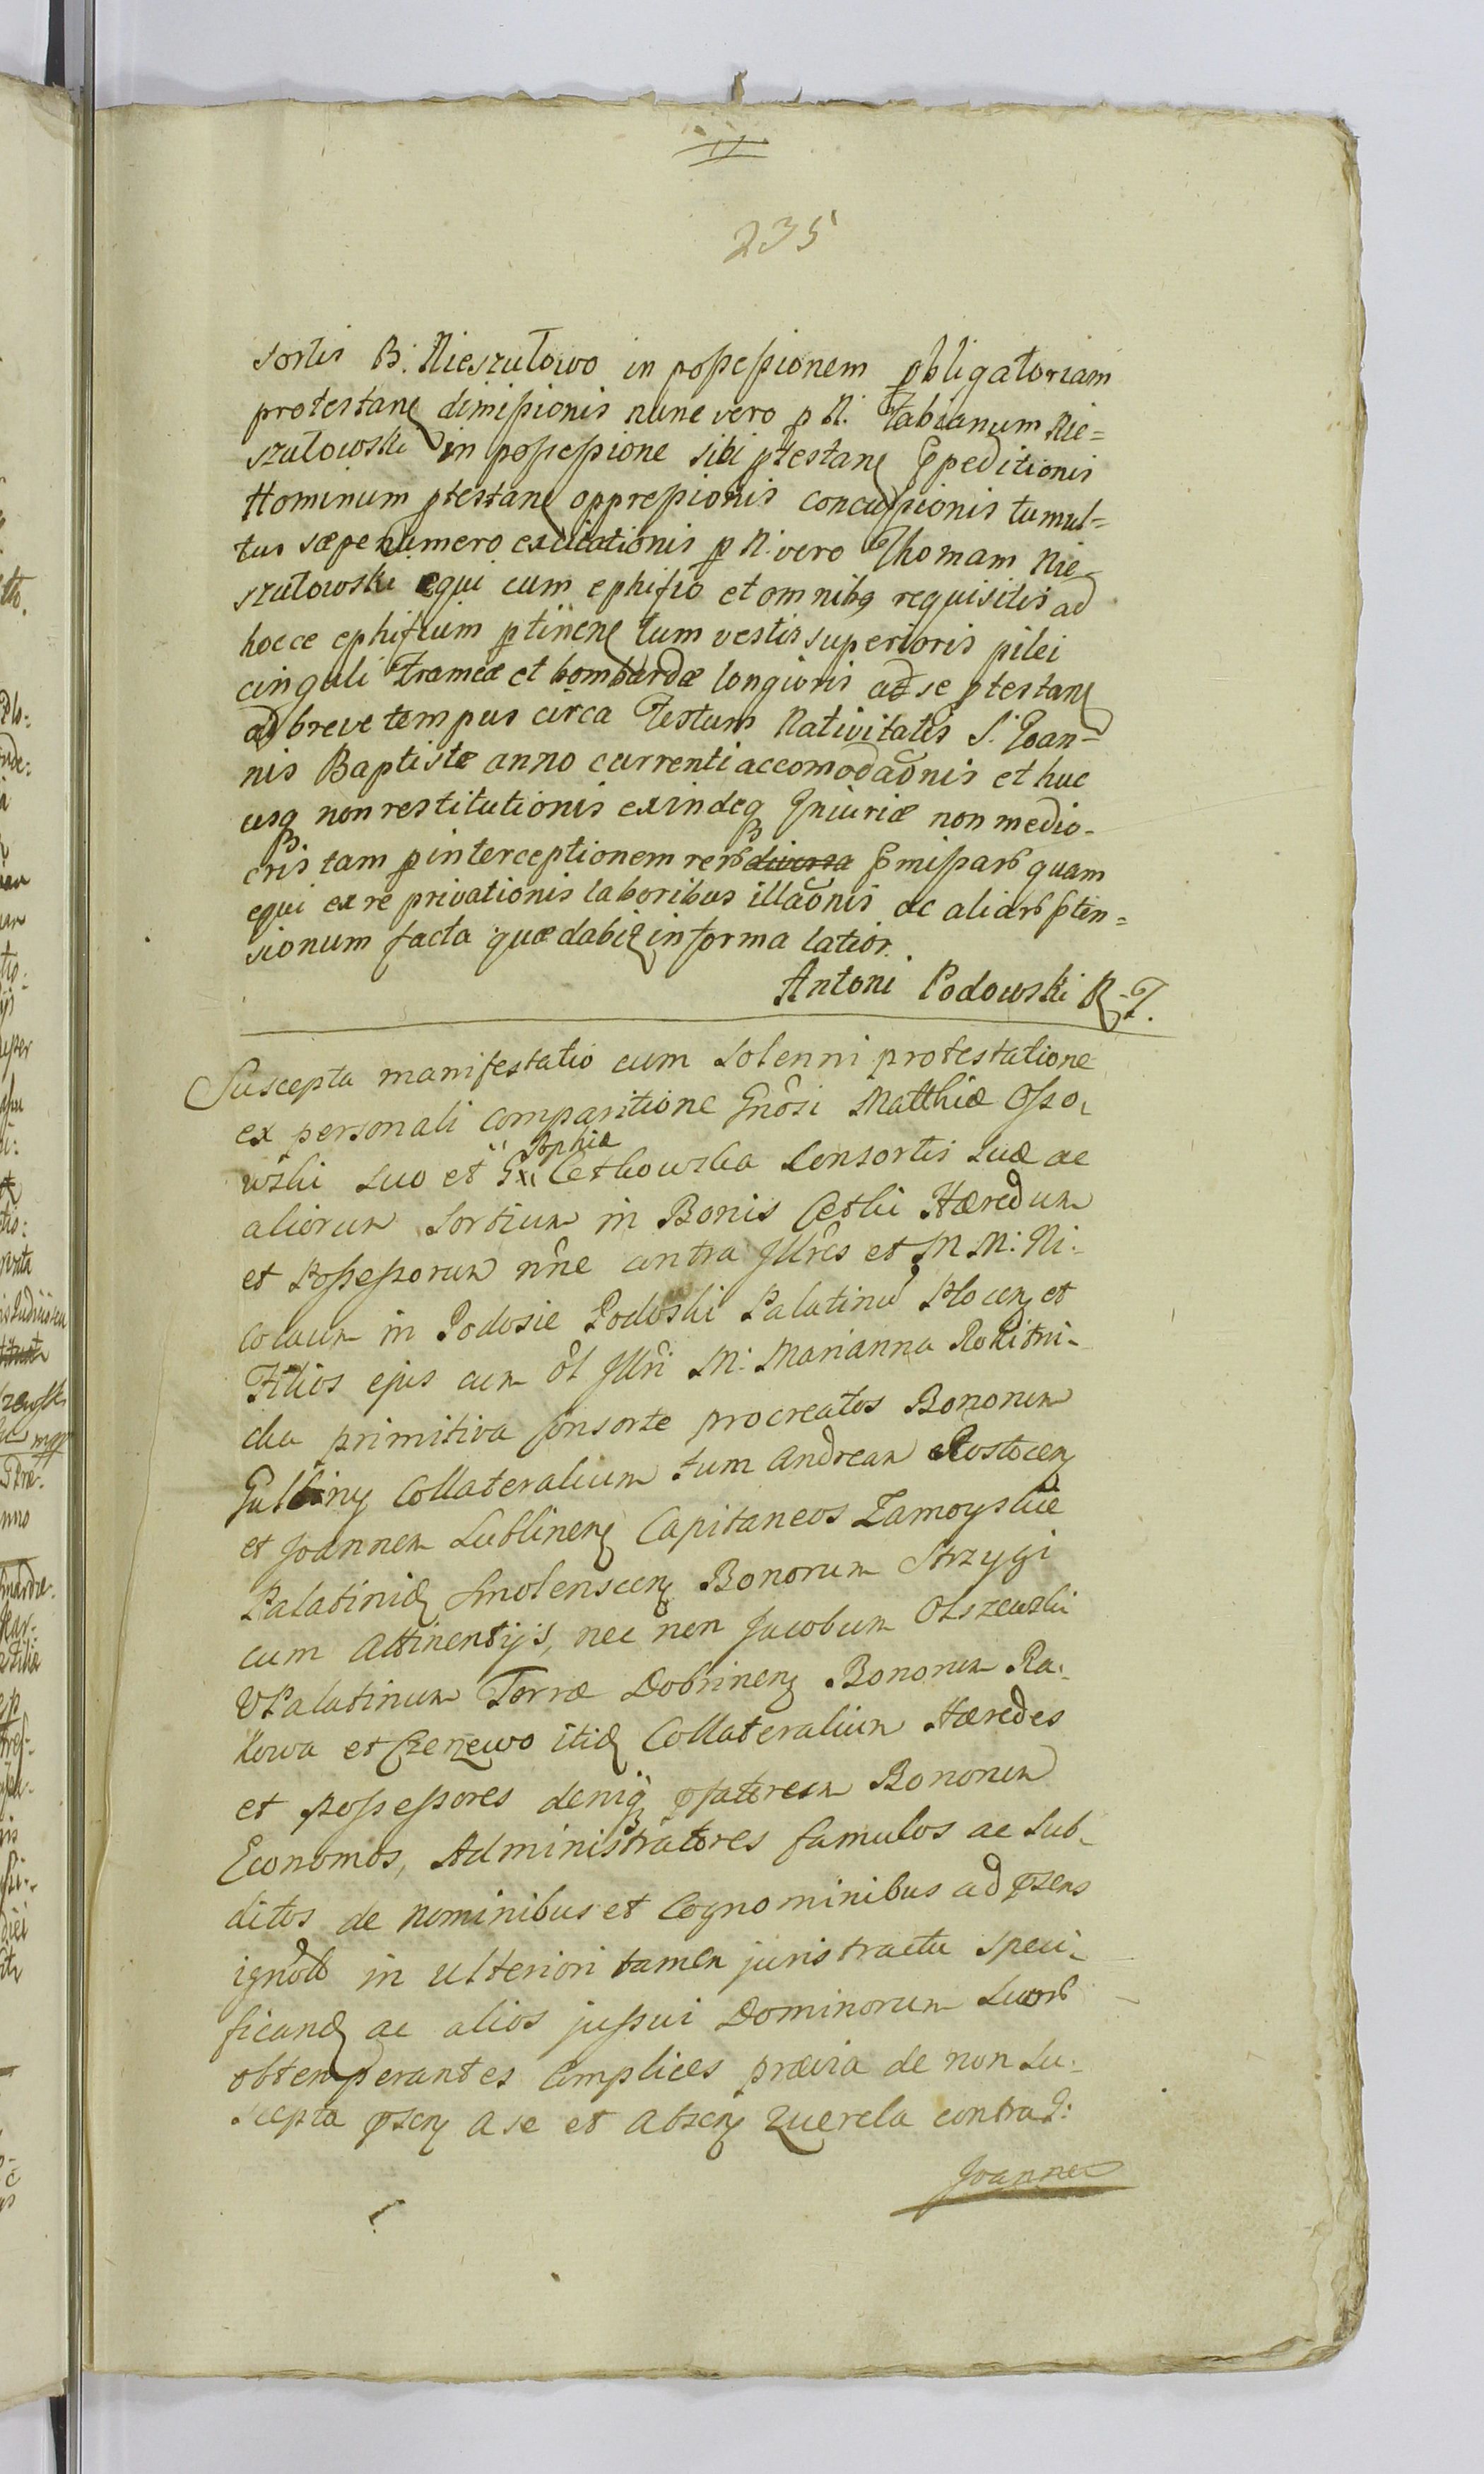 235
sortis B. Nieszułowo in possessionem obligatoriam
protestanę dimissionis nunc vero p N. Fabianum Nie=
szułowski in possessione sibi ptestanę Expeditionis
Hominum ptestanę oppressionis concussionis tumul=
tus sæpenumero excitationis p N. vero Thomam Nie-
szułowski equi cum ephifio et omnibq requisitis ad
hocce ephifium ptinenę tum vestis superioris pilei
cinguli Frameæ et bombardæ longioris ad se ptestanę
ad breve tempus circa Festum Nativitatis S. Joan=
nis Baptistæ anno currenti accomodaōnis et huc
usq non restitutionis exindeq Injuriæ non medio-
cris tam p interceptionem rerō diversa Emissarō quam
equi ex re privationis laboribus illaōnis ac aliarō pten=
sionum facta quæ dabię in forma latior.
Antoni Podowski R. T.
Suscepta manifestatio cum Solenni protestatione
ex personali comparitione Gnōsi Matthiæ Osso-
wski suo et Gx Sophiæ Cetkowska Consortis suæ ac
aliorum Sortium in Bonis Cetki Hæredum
et Possessorum nn̄e contra Illr̄es et M. M. Ni-
colaum in Podosie Podoski Palatinū Plocenę et
Filios ejus cum ōl Illri M. Marianna Rokitni-
cka primitiva Consorte procreatos Bonorum
Collateralium tum Andream Rostocenę
et Joannem Lublinenę Capitaneos Zamoyskie
Palatinidę Smolenscenę Bonorum Strzygi
cum Attinentijs, nec non Jacobum Olszewski
VPalatinum Terræ Dobrinenę Bonorum Ra-
kowa et Czerzewo itidę Collateralium Hæredes
et possessores deniq pfatorum Bonorum
Economos, Administratores famulos ac Sub-
ditos de nominibus et Cognominibus ad psens
ignōtō in ulteriori tamen juris tractu speci-
ficandę ac alios jussui Dominorum suorō
obtemperantes Complices prævia de non su-
scepta psenę a se et absenę querela contrad:
Joannes